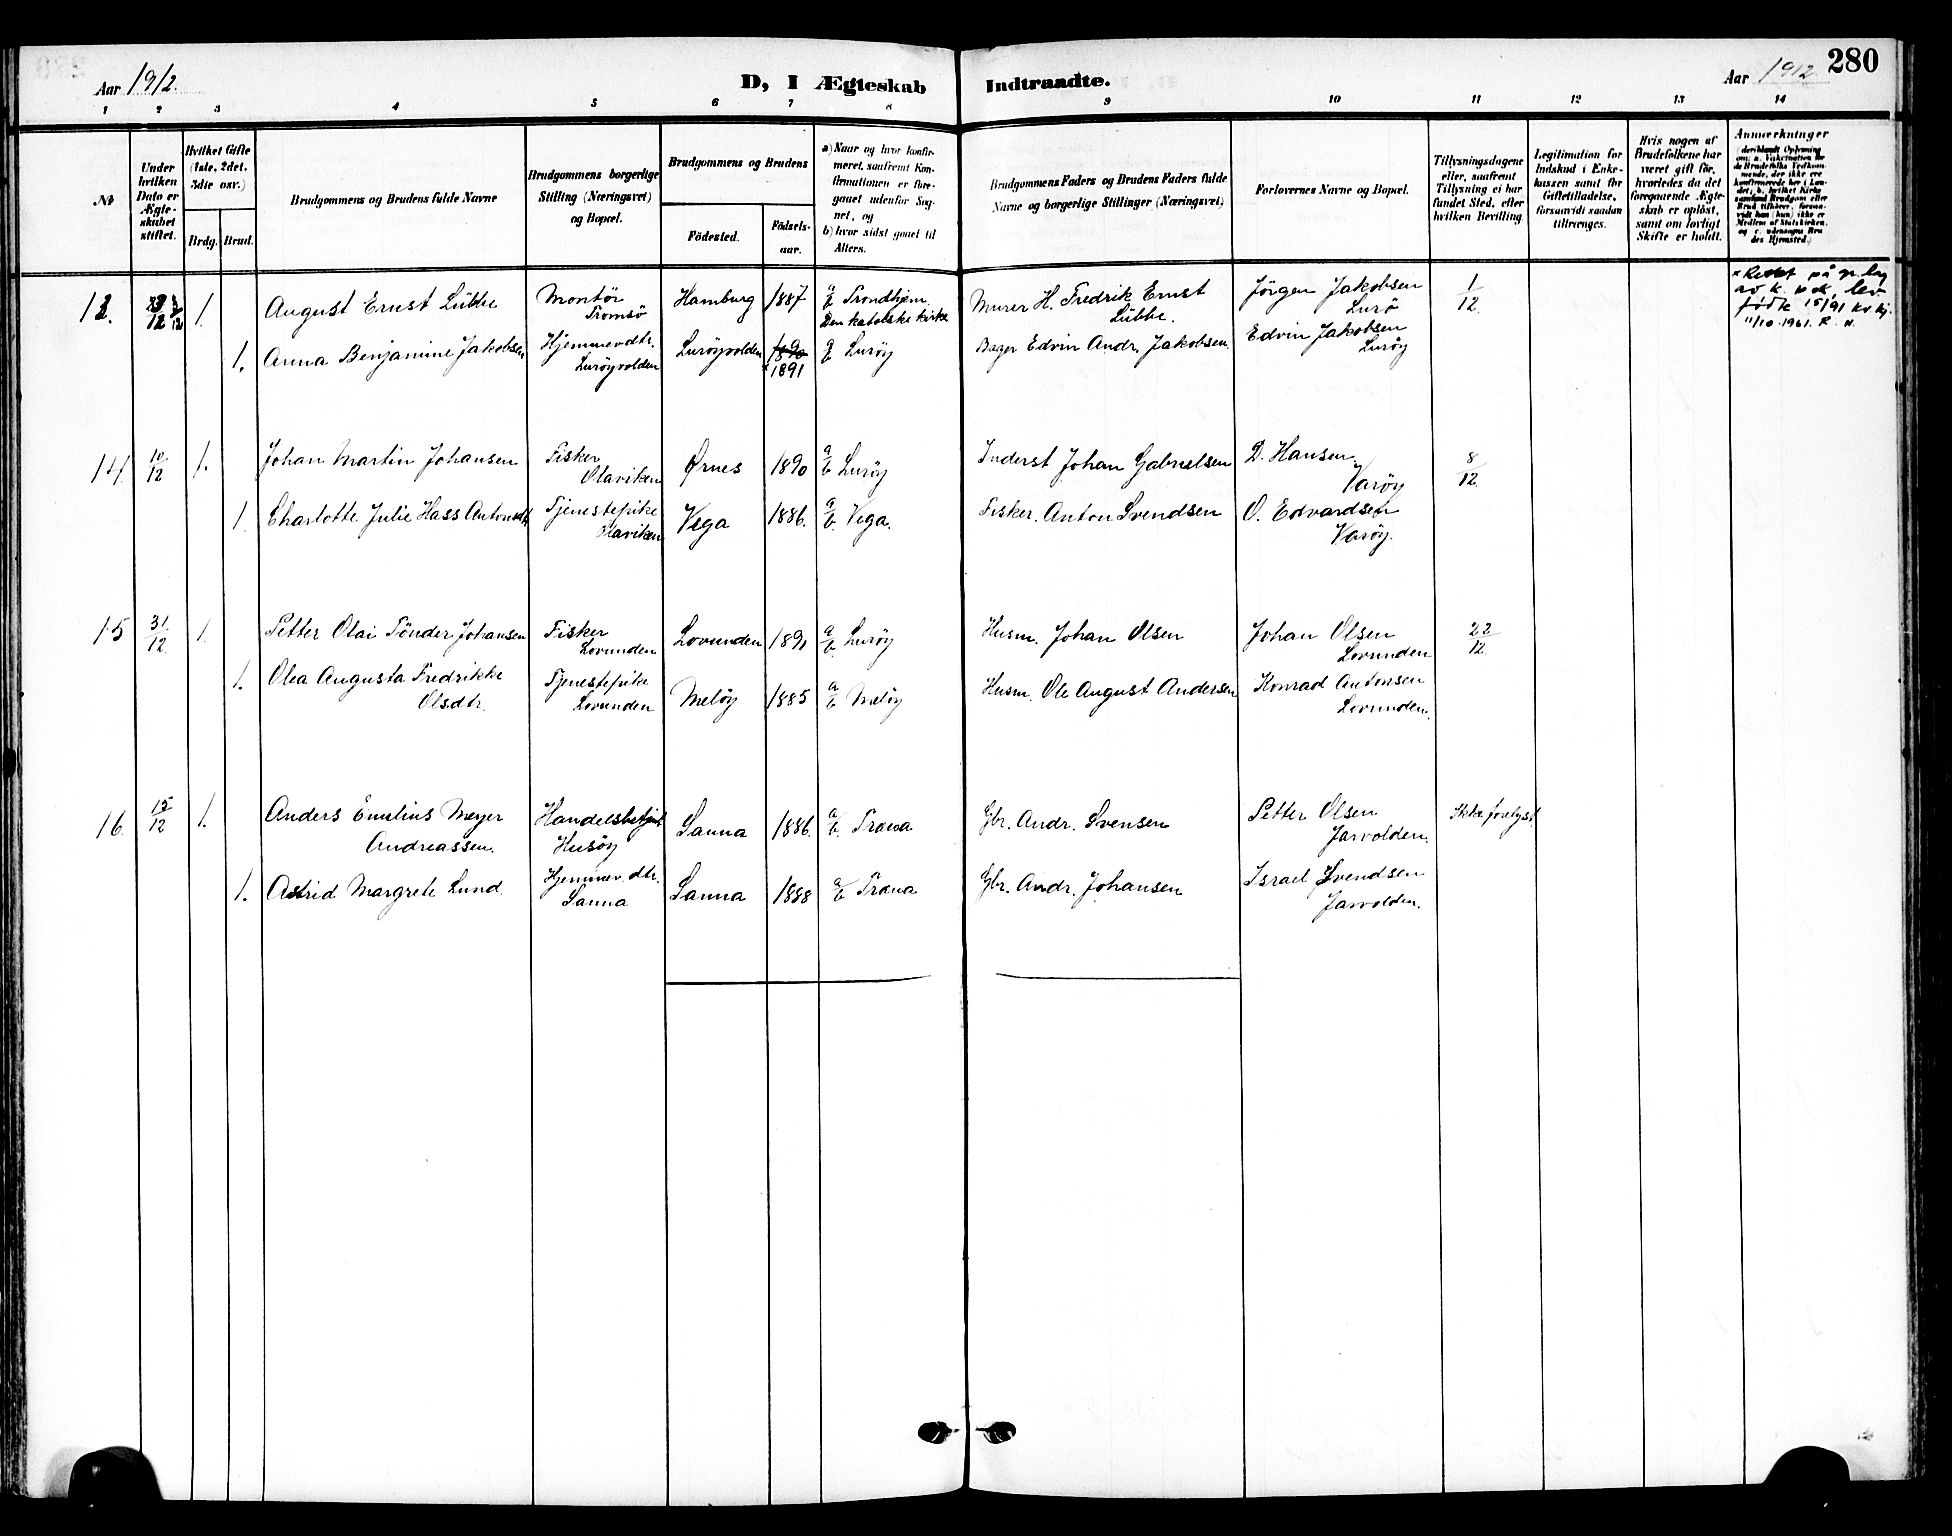 Aar 1912.
D, I Ægteskab Indtraadte.
Aar 1912
280
1 2 3 4 5 6 7 8 9 10 11 12 13 14
Nr.
Under hvilken Dato er Ægteskabet stiftet.
Hvilket Gifte (1ste, 2det, 3die osv.)
Brdg. Brud.
Brudgommens og Brudens fulde Navne
Brudgommens borgerlige Stilling (Næringsvei) og Bopæl.
Brudgommens og Brudens
Födested.
Födselsaar.
a) Naar og hvor konfirmeret, saafremt Konfirmationen er foregaaet udenfor Sognet, og
b) hvor sidst gaaet til Alters.
Brudgommens Faders og Brudens Faders fulde Navne og borgerlige Stillinger (Næringsvei)
Forlovernes Navne og Bopæl.
Tillysningsdagene eller, saafremt Tillysning ei har fundet Sted, efter hvilken Bevilling.
Legitimation for Indskud i Enkekassen samt for Giftetilladelse, forsaavidt saadan tiltrænges.
Hvis nogen af Brudefolkene har været gift för, hvorledes da det foregaaende Ægteskab er oplöst, samt om lovligt Skifte er holdt.
Anmærkninger
13. 3/12 1. August Ernst Lübbe Montör Tromsö Hamburg 1887 a/b Trondhjem. Den katolske kirke Murer H. Fredrik Ernst Lübbe. Jörgen Jakobsen Lurö 1/12
födt 15/91
11/10-1961. R. N.
1. Anna Benjamine Jakobsen Hjemmev. dtr. Luröyvolden Luröyvolden 1890 x 1891 a/b Luröy Bager Edvin Andr. Jakobsen. Edvin Jakobsen Luröy
14. 10/12 1. Johan Martin Johansen Fisker Olaviken Ørnes 1890 a/b Luröy Inderst Johan Gabrielsen D. Hansen. Varöy 8/12.
1 Charlotte Julie Hass Antonsdtr Tjenestepike Olaviken Vega 1886. a/b. Vega. Fisker. Anton Svendsen O. Edvardsen Varöy.
15 31/12. 1. Petter Olai Tönder Johansen Fisker Lovunden Lovunden 1891 a/b. Luröy Husm. Johan Olsen Johan Olsen Lovunden 22/12.
1. Olea Augusta Fredrikke Olsdtr. Tjenestepike Lovunden Melöy 1885 a/b Melöy Husm. Ole August Andersen Konrad Antonsen Lovunden.
16. 15/12 1. Anders Emilius Meyer Andreassen. Handelsbetjent Husöy Sanna 1886. a/b. Træna Gbr. Andr. Svensen Petter Olsen Jarvolden. Ikke forelyst.
1. Astrid Margrete Lund. Hjemmev. dtr. Sanna Sanna 1888 a/b Træna Gbr. Andr. Johansen Israel Svendsen Jarvolden.